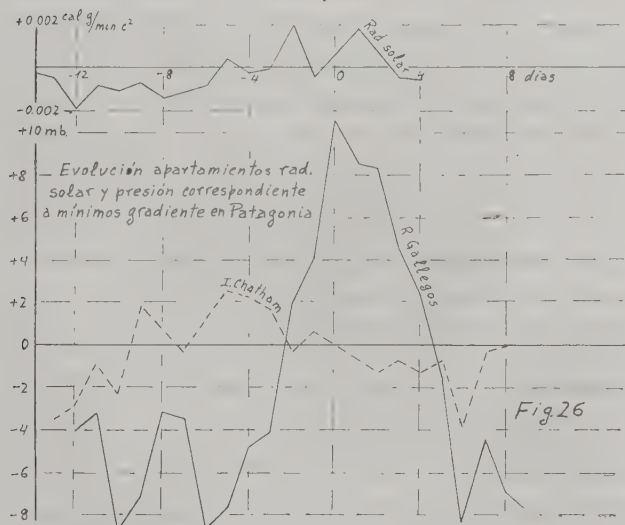 +0.002 cal g/min c²
Rad solar
-12 -8 -4 0 4 8 días
-0.002
+10 mb.
Evolución apartamientos rad.
solar y presión correspondiente
a mínimos gradiente en Patagonia
+8
+6
+4
+2
0
-2
-4
-6
-8
I. Chatham
R Gallegos
Fig. 26